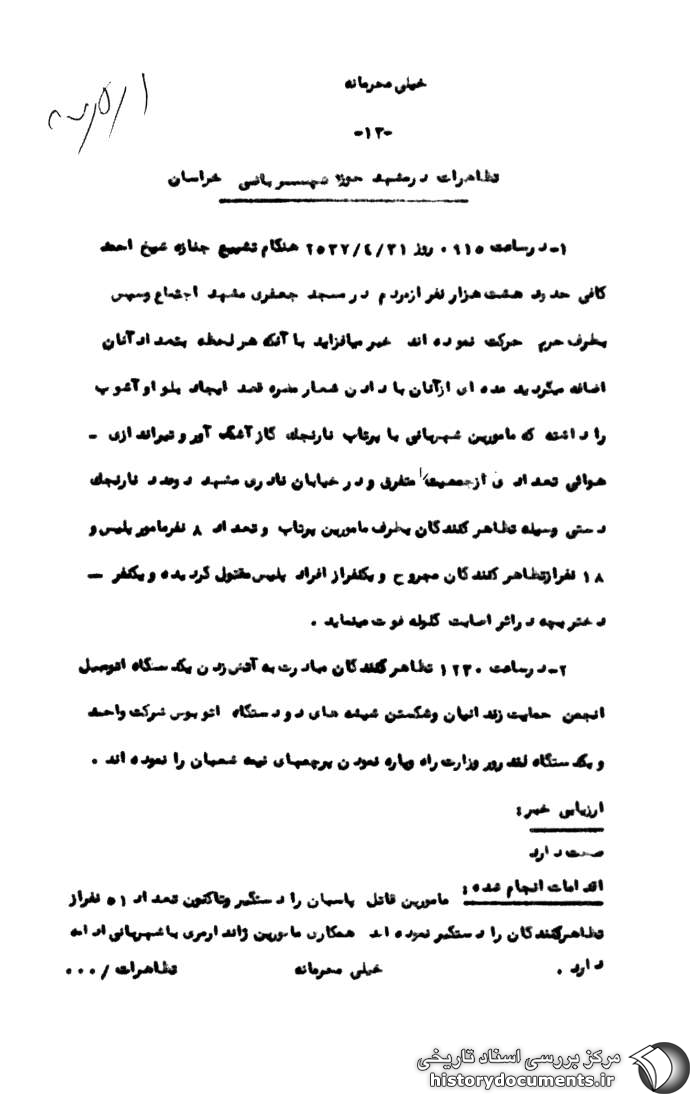 خیلی محرمانه
-۱۳-
تظاهرات در مشهد حوزه شهربانی خراسان
۱- در ساعت ۰۹۱۵ روز ۲۵۳۷/۴/۳۱ هنگام تشییع جنازه شیخ احمد
کافی حدود هشت هزار نفر از مردم در مسجد جعفری مشهد اجتماع و سپس
بطرف حرم حرکت نموده اند خبر میافزاید با آنکه هر لحظه بتعداد آنان
اضافه میگردید عده ای از آنان با دادن شعار مضره قصد ایجاد بلوا و آشوب
را داشته که مامورین شهربانی با پرتاب نارنجك گاز آشگ آور و تیراندازی -
هوائی تعدادی از جمعیت را متفرق و در خیابان نادری مشهد دوعدد نارنجك
دستی وسیله تظاهر کنندگان بطرف مامورین پرتاب و تعداد ۸ نفر مامور پلیس و
۱۸ نفر از تظاهر کنندگان مجروح و یکنفر از افراد پلیس مقتول گردیده و یکنفر —
دختر بچه در اثر اصابت گلوله فوت مینماید .
۲- در ساعت ۱۲۳۰ تظاهر کنندگان مبادرت به آتش زدن یکدستگاه اتومبیل
انجمن حمایت زندانیان و شکستن شیشه های دو دستگاه اتوبوس شرکت واحد
و یکدستگاه لندرور وزارت راه و پاره نمودن پرچمهای نیمه شعبان را نموده اند .
ارزیابی خبر :
صحت دارد
اقدامات انجام شده : مامورین قاتل پاسبان را دستگیر و تاکنون تعداد ۵۱ نفر از
تظاهر کنندگان را دستگیر نموده اند همکاری مامورین ژاندارمری با شهربانی ادامه
دارد .
خیلی محرمانه
تظاهرات / ۰۰۰
مرکز بررسی اسناد تاریخی
historydocuments.ir